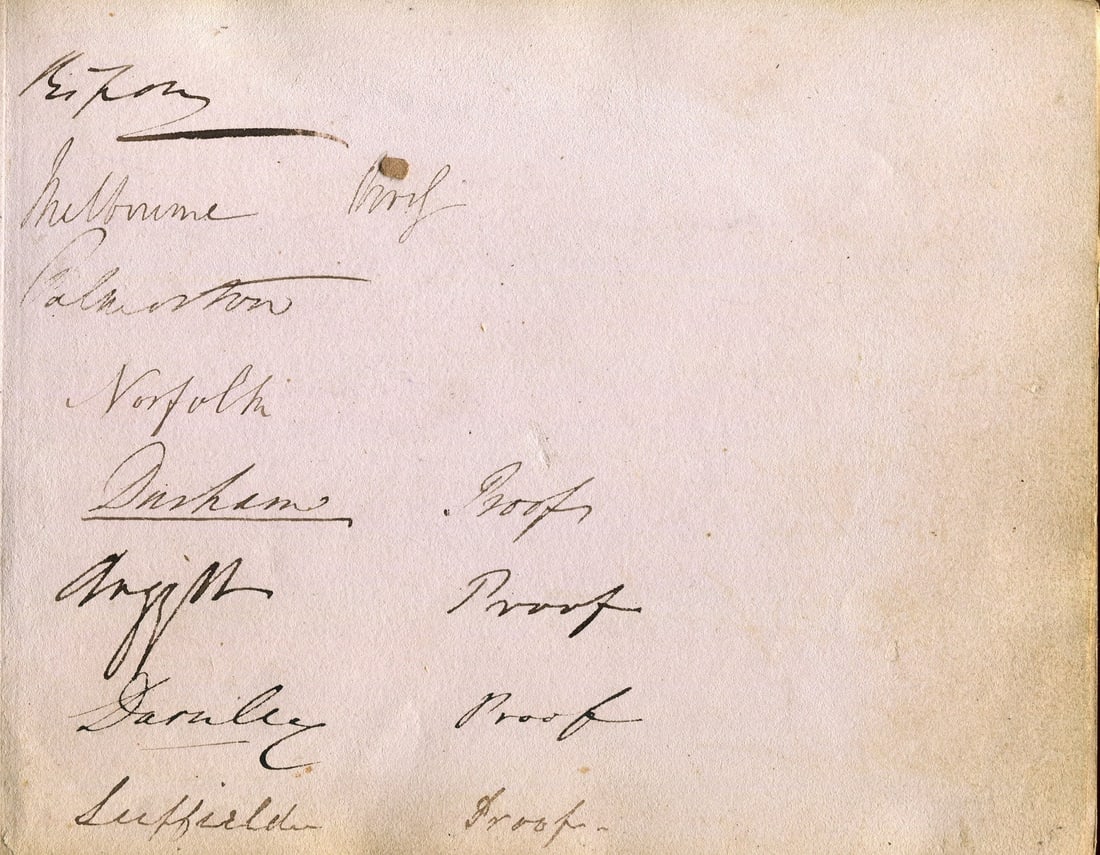 Ripon
Melbourne Proof
Palmerston
Norfolk
Durham Proof
Argyll Proof
Darnley Proof
Suffield Proof.